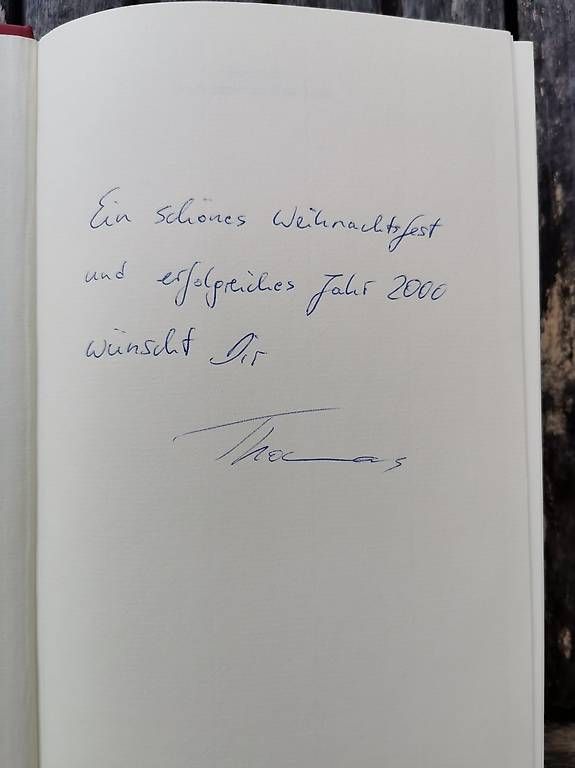 Ein schönes Weihnachtsfest
und erfolgreiches Jahr 2000
wünscht Dir
Thomas